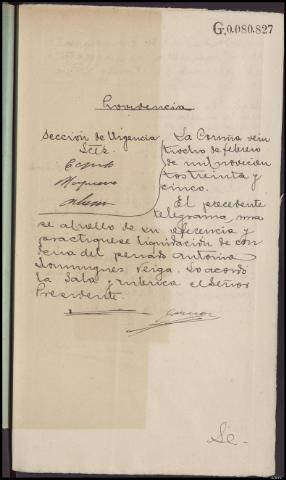 G.0.080.827
Providencia
Sección de Urgencia
Sres.
La Coruña vein
tiocho de febrero
de mil novecien
tos treinta y
cinco.
El precedente
telegrama, úna
se al rollo de su referencia y
practiquese liquidación de con
dena del penado Antonio
Domínguez Veiga. Lo acordó
la Sala y rubrica el Señor
Presidente.
Se